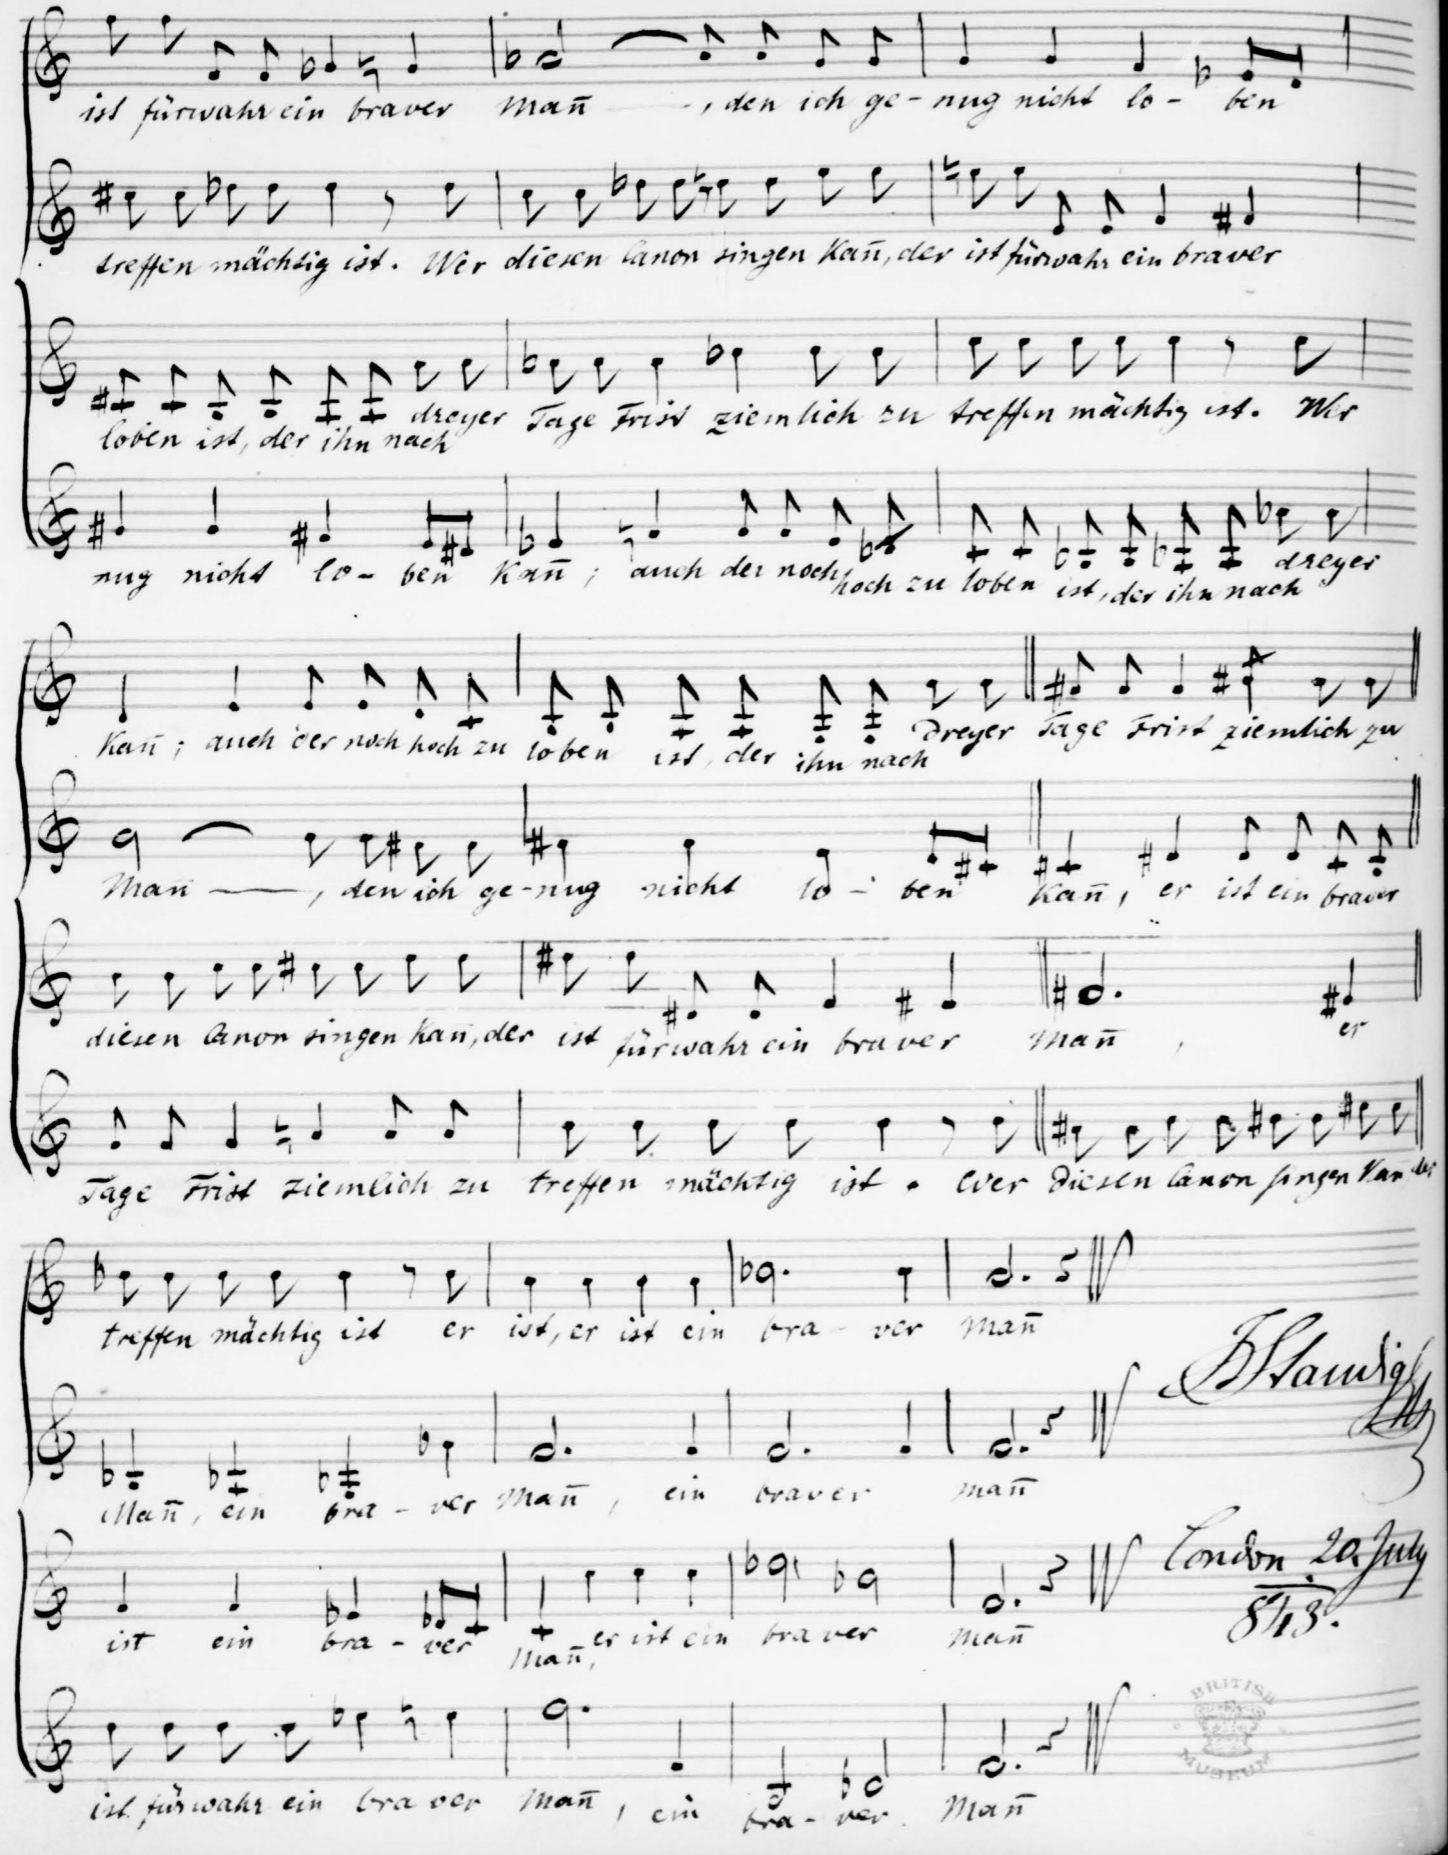 ist fürwahr ein braver Mañ , den ich ge - nug nicht lo - ben
treffen mächtig ist. Wer diesen Canon singen Kañ, der ist fürwahr ein braver
loben ist, der ihn nach dreyer Tage Frist ziemlich zu treffen mächtig ist. Wer
nug nicht lo - ben Kañ ; auch der noch hoch zu loben ist, der ihn nach dreyer
Kañ ; auch der noch hoch zu loben ist, der ihn nach Dreyer Tage Frist ziemlich zu
Mañ , den ich ge - nug nicht lo - ben Kañ, er ist ein braver
diesen Canon singen Kañ, der ist fürwahr ein braver Mañ , er
Tage Frist ziemlich zu treffen mächtig ist . Wer Diesen Canon singen Kañ der
treffen mächtig ist er ist, er ist ein bra - ver Mañ
Mañ, ein bra - ver Mañ , ein braver Mañ
London 20. July
843.
ist ein bra - ver Mañ, er ist ein braver Mañ
BRITISH MUSEUM
ist fürwahr ein braver Mañ , ein bra - ver Mañ